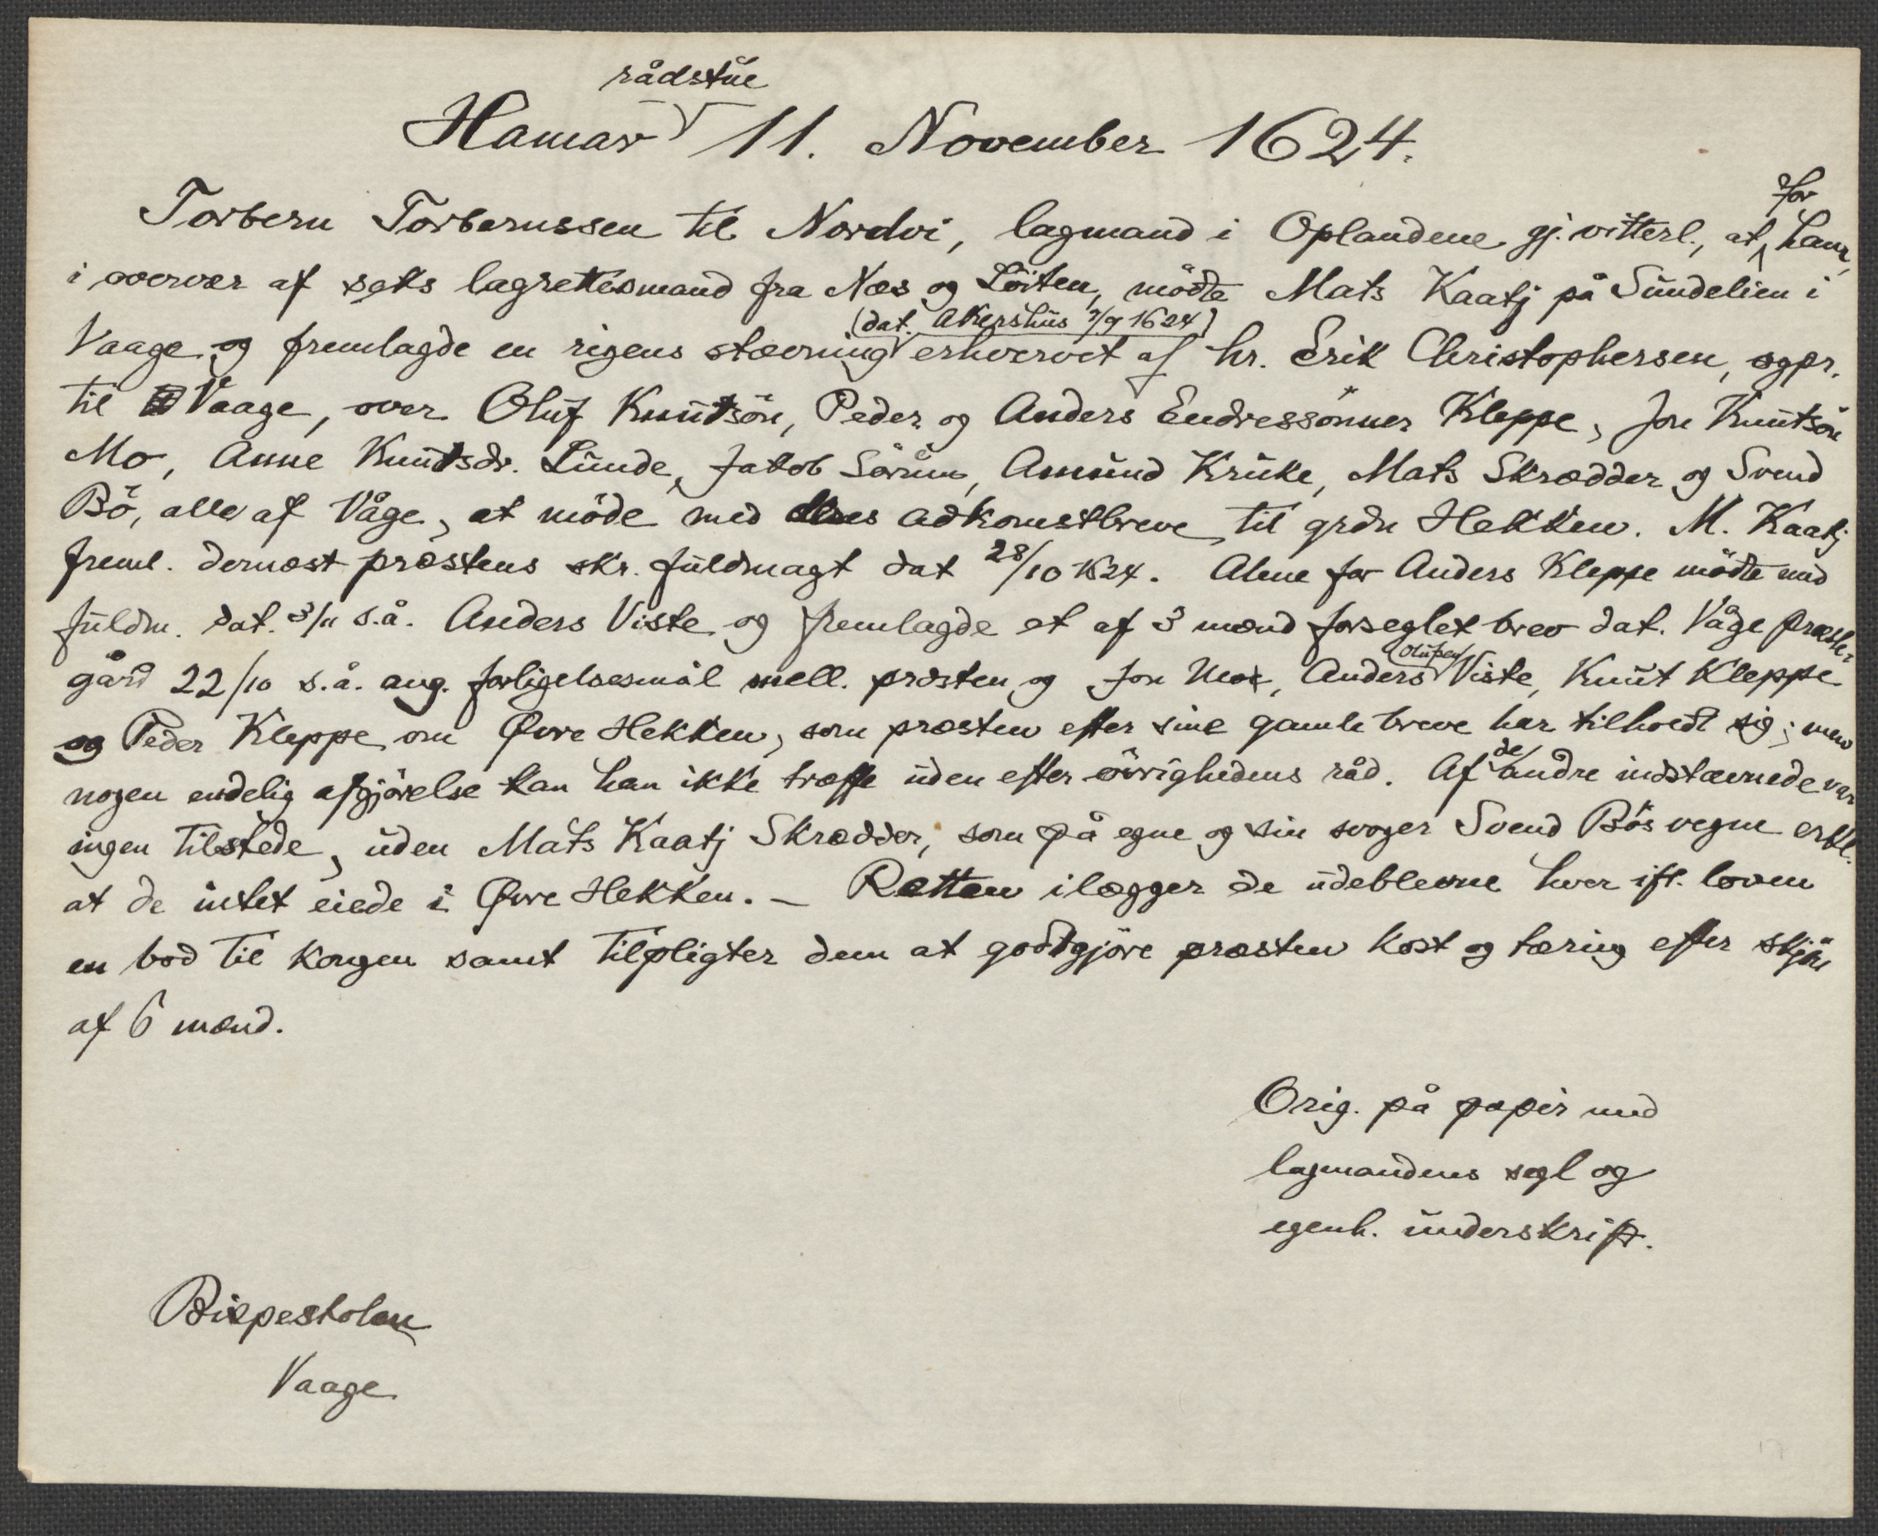 Hamar rådstue 11. November 1624.
Torbern Torbernssen til Nordvi, lagmand i Oplandene gj. vitterl., at for ham,
i overvær af seks lagrettesmænd fra Næs og Löiten, mödte Mats Kaatj på Sundelien i
Vaage og fremlagde en rigens stævning (dat. Akershus 7/9 1624) erhvervet af hr. Erik Christophersen, sgpr.
til Vaage, over Oluf Knutsön, Peder og Anders Endressönner Kleppe, Jon Knutsön
Mo, Anne Knutsdr. Lunde, Jakob Sörum, Amund Kruke, Mats Skrædder og Svend
Bö, alle af Våge, at möde med deres adkomstbreve til grdn Hekken. M. Kaatj
freml. dernæst præstens skr. fuldmagt dat 28/10 1624. Alene for Anders Kleppe mödte med
fuldm. dat. 3/11 s.å. Anders Viste og fremlagde et af 3 mænd forseglet brev dat. Våge præste-
gård 22/10 s.å. ang. forligelsesmål mell. præsten og Jon Mo, Anders (Olufsen) Viste, Knut Kleppe
og Peder Kleppe om Øvre Hekken, som præsten efter sine gamle breve har tilholdt sig; men
nogen endelig afgjörelse kan han ikke træffe uden efter övrighedens råd. Af de andre indstævnede var
ingen tilstede, uden Mats Kaatj Skrædder, som på egne og sin svoger Svend Bös vegne erkl.
at de intet eiede i Øvre Hekken. – Retten ilægger de udeblevne hver ifl. loven
en bod til kongen samt tilpligter dem at godtgjöre præsten kost og tæring efter skjön
af 6 mænd.
Orig. på papir med
lagmandens segl og
egenh. underskrift.
Bispestolen
Vaage